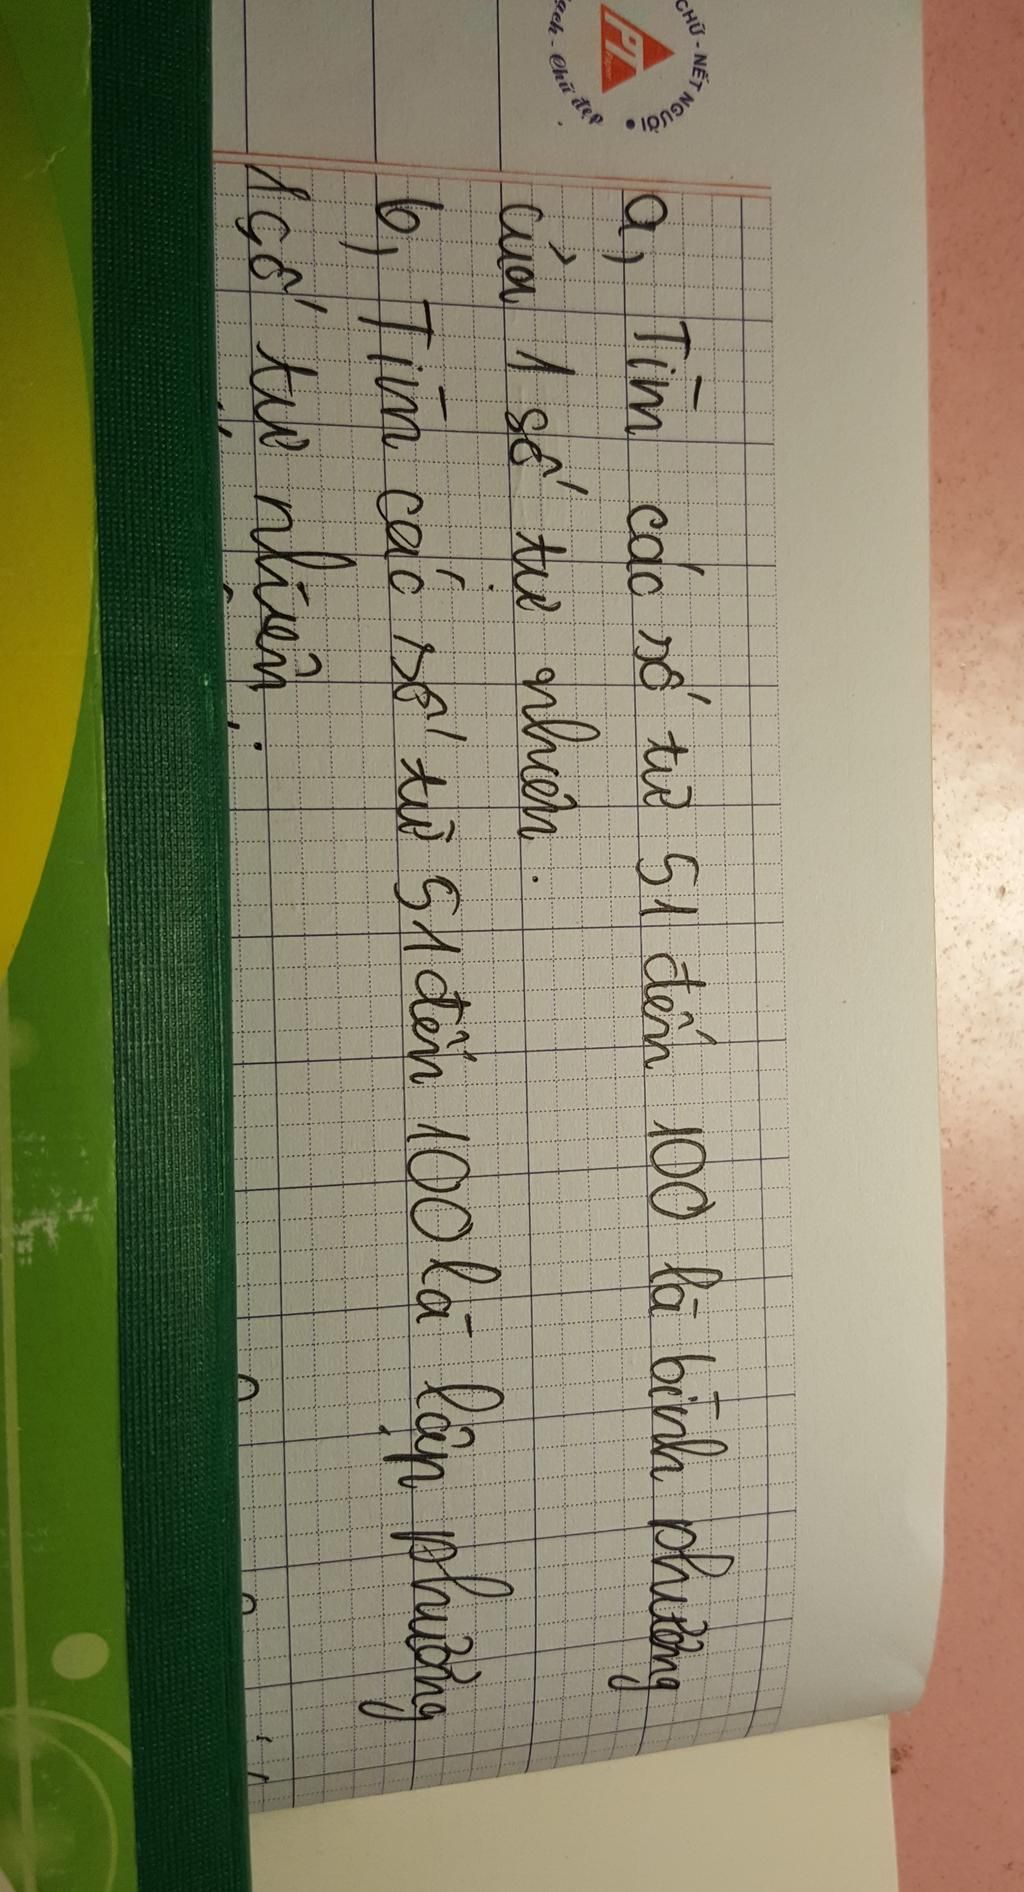 CHỮ - NẾT NGƯỜI •
PT
sạch - Chữ đẹp
a, Tìm các số từ 51 đến 100 là bình phương
của 1 số tự nhiên.
b, Tìm các số từ 51 đến 100 là lập phương
1 số tự nhiên